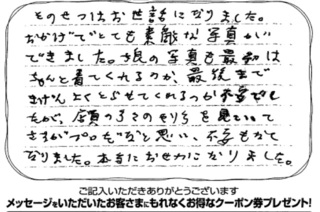 そのせつはお世話になりました。
おかげでとても素敵な写真が
できました。娘の写真も最初は
ちゃんと着てくれるのか、最後まで
きげんよくとらせてくれるのか不安でし
たが、店員の方々のやりとりを見ていて
さすがプロだなと思い、不安もなく
なりました。本当にお世わになりました。
ご記入いただきありがとうございます
メッセージをいただいたお客さまにもれなくお得なクーポン券プレゼント!